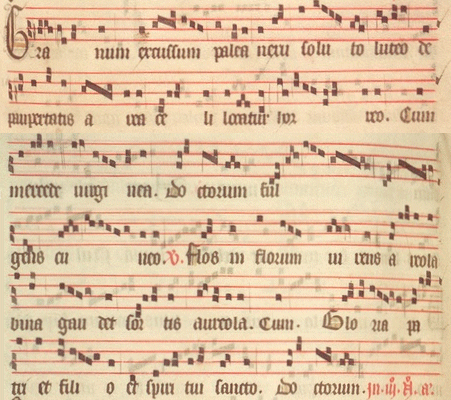 Gra num excussum palea nexu solu to luteo de
paupertatis a rea ce li locatur hor reo. Cum
mercede uirgi nea. Do ctorum ful
gens cu neo. V. Flos in florum ui rens a reola
bina gau det sor tis aureola. Cum. Glo ria pa
tri et fili o et spiri tui sancto. Do ctorum. In .iii.